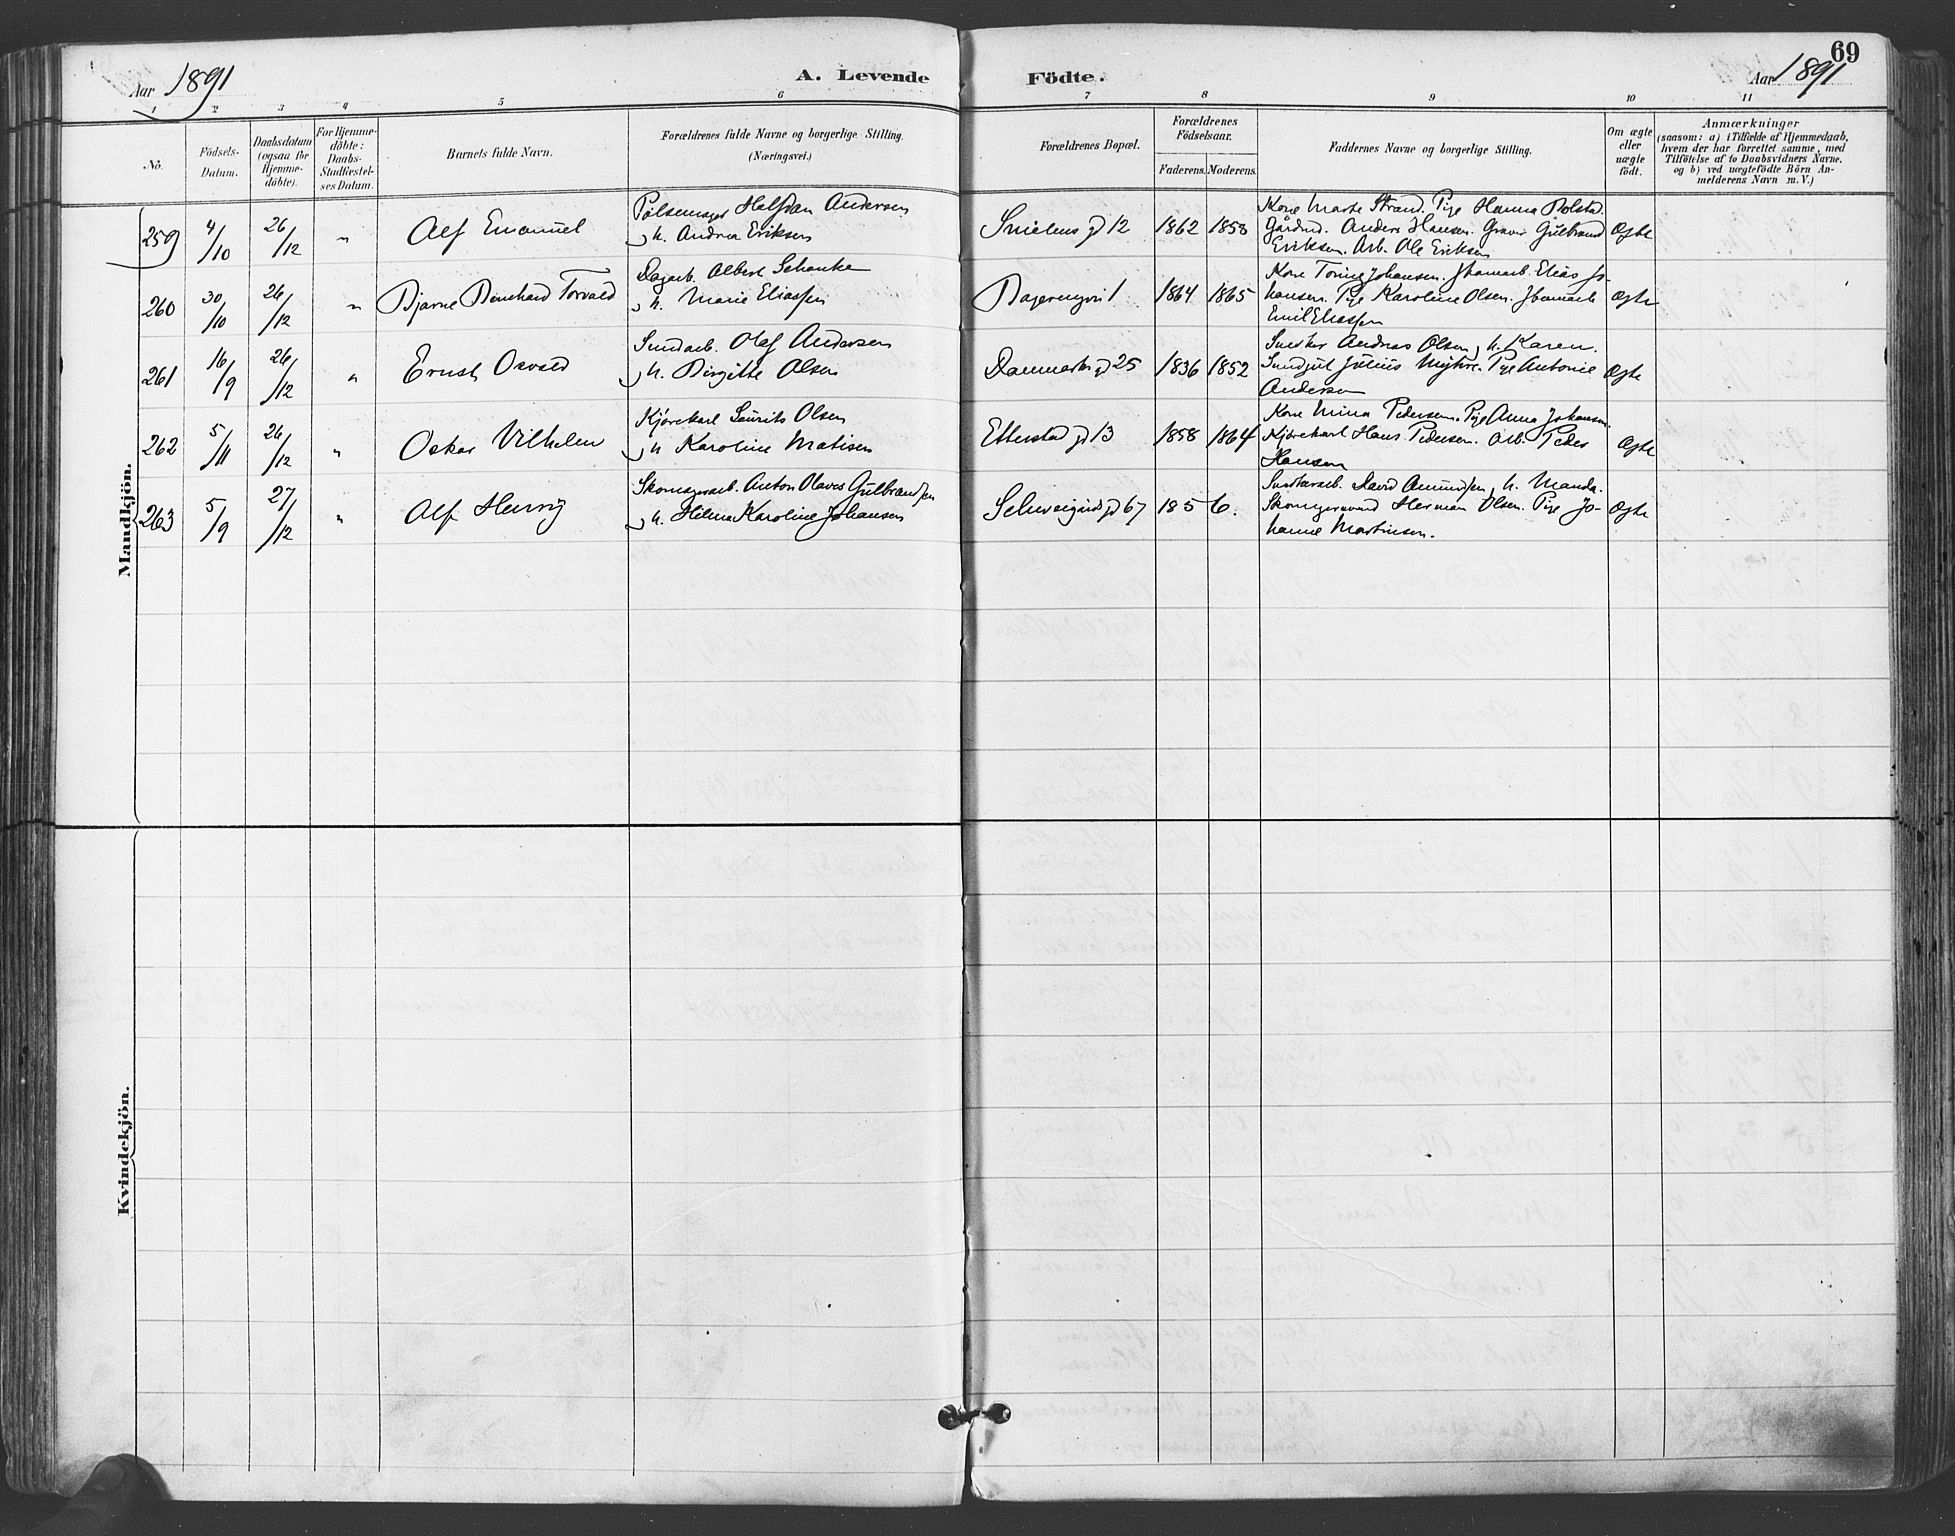 69
Aar 1891
A. Levende
Födte.
Aar 1891
1 2 3 4 5 6 7 8 9 10 11
No.
Födsels-
Datum.
Daabsdatum
(ogsaa for
Hjemme-
döbte).
For Hjemme-
döbte:
Daabs-
Stadfæstel-
ses Datum.
Barnets fulde Navn.
Forældrenes fulde Navne og borgerlige Stilling.
(Næringsvei.)
Forældrenes Bopæl.
Forældrenes
Födselsaar.
Faderens. Moderens.
Faddernes Navne og borgerlige Stilling.
Om ægte
eller
uægte
födt.
Anmærkninger
(saasom: a) i Tilfælde af Hjemmedaab,
hvem der har forrettet samme, med
Tilföielse af to Daabsvidners Navne,
og b) ved uægtefödte Börn An-
melderens Navn m. V.)
Mandkjön.
259 4/10 26/12 " Alf Emanuel
Pølsemager Halfdan Andersen
h. Andrea Eriksen
gd 12 1862 1858
Kone Marte Strand. Pige Hanna Rolstad.
Gårdmd. Anders Hansen. Graver Gulbrand
Eriksen. Arb. Ole Eriksen
Ægte
260 30/10 26/12 " Bjarne Bernhard Torvald
Dagarb. Albert Schanke
h. Marie Eliassen
1 1864 1865
Kone Torine Johansen. Elias Jo-
hansen. Pige Karoline Olsen.
Emil Eliassen
Ægte
261 16/9 26/12 " Ernst Osvald
Olaf Andersen
h. Birgitte Olsen
Danmarks gd 25 1836 1852
Snedker Andreas Olsen, h. Karen.
Julius Myhre. Pige Antonie
Andersen
Ægte
262 5/11 26/12 " Oskar Vilhelm
Kjørekarl Laurits Olsen
h. Karoline Matisen
Etterstad gd 13 1858 1864
Kone Mina Pedersen. Pige Anna Johansen.
Kjørekarl Hans Pedersen. Arb. Peder
Hansen
Ægte
263 5/9 27/12 " Alf
Skomagerarb. Anton Olaves Gulbrandsen
h. Hilma Karoline Johansen
Schweigårds gd 67 185 6.
David Amundsen, h. Manda.
Skomagersvend Herman Olsen. Pige Jo-
hanne Martinsen.
Ægte
Kvindekjön.